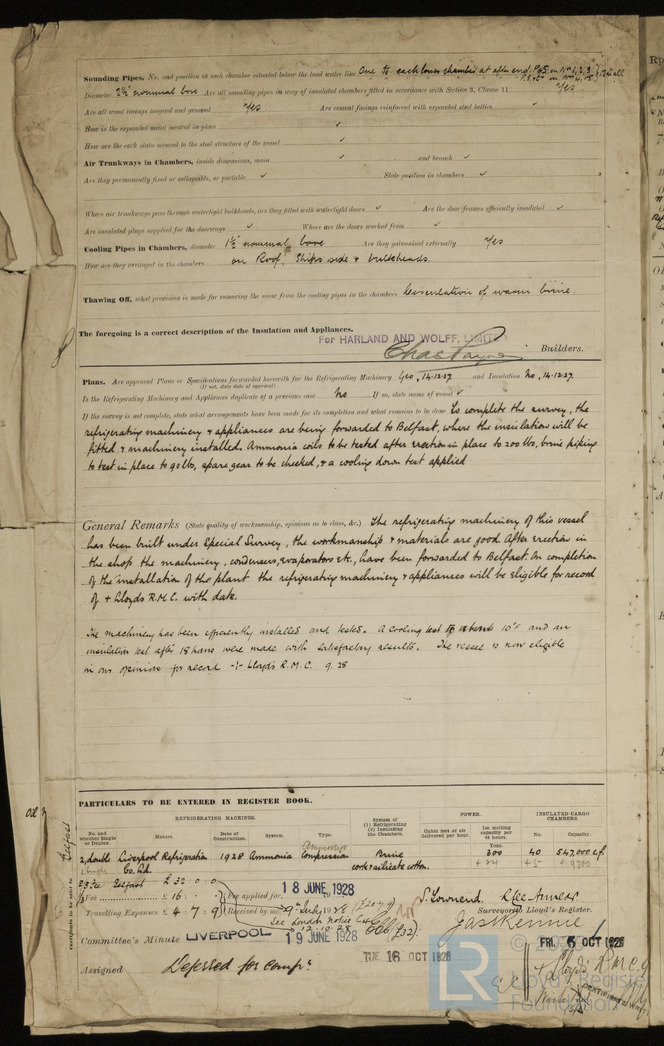 Sounding Pipes, No. and position in each chamber situated below the load water line One to each lower chamber at after end. P&S in Nos 1, 2, 3
Diameter 2½" nominal bore Are all sounding pipes in way of insulated chambers fitted in accordance with Section 3, Clause 11 Yes
Are all wood linings tongued and grooved Yes Are cement facings reinforced with expanded steel lattice ✓
How is the expanded metal secured in place ✓
How are the cork slabs secured to the steel structure of the vessel ✓
Air Trunkways in Chambers, inside dimensions, main ✓ and branch ✓
Are they permanently fixed or collapsible, or portable ✓ State position in chambers ✓
Where air trunkways pass through watertight bulkheads, are they fitted with watertight doors ✓ Are the door frames efficiently insulated ✓
Are insulated plugs supplied for the doorways ✓ Where are the doors worked from ✓
Cooling Pipes in Chambers, diameter 1½" nominal bore Are they galvanised externally Yes
How are they arranged in the chambers on Roof, Ships side & bulkheads.
Thawing Off, what provision is made for removing the snow from the cooling pipes in the chambers Circulation of warm brine.
The foregoing is a correct description of the Insulation and Appliances.
For HARLAND AND WOLFF, LIMITED.
Chas Payne Builders.
Plans. Are approved Plans or Specifications forwarded herewith for the Refrigerating Machinery Yes, 14.12.27 and Insulation No, 14.12.27.
(If not, state date of approval)
Is the Refrigerating Machinery and Appliances duplicate of a previous case No If so, state name of vessel ✓
If the survey is not complete, state what arrangements have been made for its completion and what remains to be done To complete the survey, the
refrigerating machinery & appliances are being forwarded to Belfast, where the insulation will be
fitted & machinery installed. Ammonia coils to be tested after erection in place to 200 lbs, brine piping
to test in place to 90 lbs, spare gear to be checked, & a cooling down test applied
General Remarks (State quality of workmanship, opinions as to class, &c.) The refrigerating machinery of this vessel
has been built under Special Survey, the workmanship & materials are good. After erection in
the shop the machinery, condensers, evaporators etc, have been forwarded to Belfast. On completion
of the installation of the plant the refrigerating machinery & appliances will be eligible for record
of + Lloyds R.M.C. with date.
The machinery has been efficiently installed and tested. A cooling test to about 10°F and an
insulation test after 18 hours were made with satisfactory results. The vessel is now eligible
in our opinion for record -|- Lloyd's R.M.C. 9.28
PARTICULARS TO BE ENTERED IN REGISTER BOOK.
REFRIGERATING MACHINES. System of (1) Refrigerating (2) Insulating the Chambers. POWER. INSULATED CARGO CHAMBERS
No. and whether Single or Duplex. Makers. Date of Construction. System. Type. Cubic feet of air delivered per hour. Ice melting capacity per 24 hours. No. Capacity.
Tons.
2, double Liverpool Refrigeration Co. Ltd. 1928 Ammonia Compression Brine 300 40 547,000 c.f.
cork & silicate cotton.
2/3 Fee Belfast £ 32 : 0 : 0
1/3 Fee £ 16 : Fee applied for, 18 JUNE, 1928
Travelling Expenses £ 4 : 7 : 9 Received by me
See London Notice
12.10.28
S. Townend. R Lee Amess
Surveyor to Lloyd's Register.
Jas Rennie
Committee's Minute LIVERPOOL 19 JUNE 1928
FRI. 5 OCT 1928
TUE 16 OCT 1928
Assigned Deferred for compn.
+ Lloyds R.M.C.
CERTIFICATE WRITTEN
LR
© 2020
Lloyd's Register
Foundation